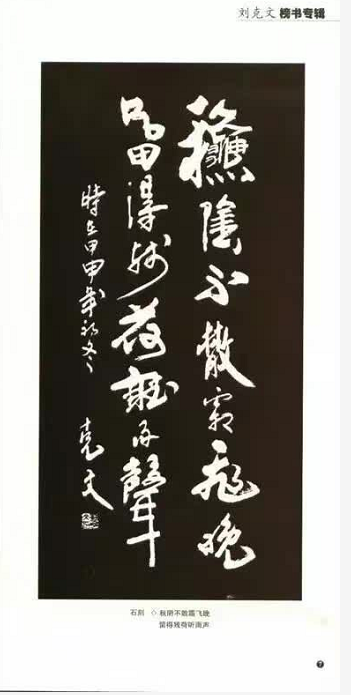 刘克文 榜书专辑
龝陰不散霜飛晚
留得残荷聽雨聲
時在甲申年初冬
克文
石刻 ◇ 秋阴不散霜飞晚
留得残荷听雨声
7